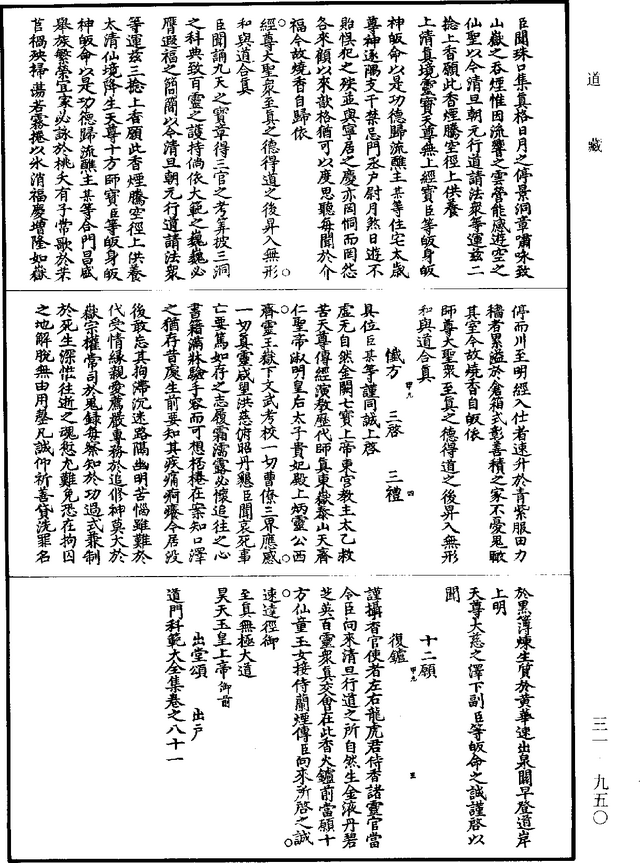 道藏
臣聞珠口集真格日月之停景洞章嘯咏致
山嶽之吞煙惟因流響之雲營能感遊空之
仙聖以今清旦朝元行道請法眾等運茲二
捻上香願此香煙騰空徑上供養
上清真境靈寶天尊無上經寶臣等皈身皈
神皈命以是功德歸流醮主某等住宅太歲
尊神逐隅支干禁忌門丞戶尉月煞日遊不
貽惧犯之殃並與寧居之慶亦罔恫而罔怨
各來顧以來歆格猶可以度思聽每聞於介
福今故燒香自歸依
經尊大聖眾至真之德得道之後昇入無形
和與道合真
臣聞誦九天之寶章得三官之考筭披三洞
之科典致百靈之護持倘依大範之巍巍必
膺遐福之簡簡以今清旦朝元行道請法眾
等運茲三捻上香願此香煙騰空徑上供養
太清仙境降生天尊十方師寶臣等皈身皈
神皈命以是功德歸流醮主某等合門昌盛
舉族繁榮宜家必詠於桃夭有子常歌於芣
苢禍殃掃蕩者霧捲以氷消福慶增隆如嶽
停而川至明經入仕者速升於青紫服田力
穡者累謚於倉箱式彰善積之家不憂鬼瞰
其室今故燒香自皈依
師尊大聖眾至真之德得道之後昇入無形
和與道合真
懺方 三啓 三禮
具位臣某等謹同誠上啓
虛无自然金闕七寶上帝東宮教主太乙救
苦天尊傳經演教歷代師真東嶽泰山天齊
仁聖帝淑明皇后太子貴妃殿上炳靈公西
齊靈王嶽下文武考校一切曹僚三界應感
一切真靈咸望洪慈俯昭丹懇臣聞哀死事
亡要篤如存之志履霜濡露必懷追往之心
書籍滿牀驗手容而可想桮棬在案知口澤
之猶存昔處生前要知其疾痛痾癢今居沒
後敢忘其拘滯沉迷路隔幽明苦惱雖難於
代受情緣親愛薦嚴專務於追修神莫大於
嶽宗權常司於鬼錄每察知於功過式兼制
於死生深恠往逝之魂愆尤難免恐在拘囚
之地解脫無由用罄凡誠仰祈善貸洗罪名
於黑簿煉生質於黃華速出泉關早登道岸
上明
天尊大慈之澤下副臣等皈命之誠謹啓以
聞
十二願
復鑪
謹攝香官使者左右龍虎君侍香諸靈官當
令臣向來清旦行道之所自然生金液丹碧
芝英百靈眾真交會在此香火鑪前當願十
方仙童玉女接侍蘭煙傳臣向來所啓之誠
速達徑御
至真無極大道
昊天玉皇上帝御前
出堂頌 出戶
道門科範大全集卷之八十一
三一·九五〇